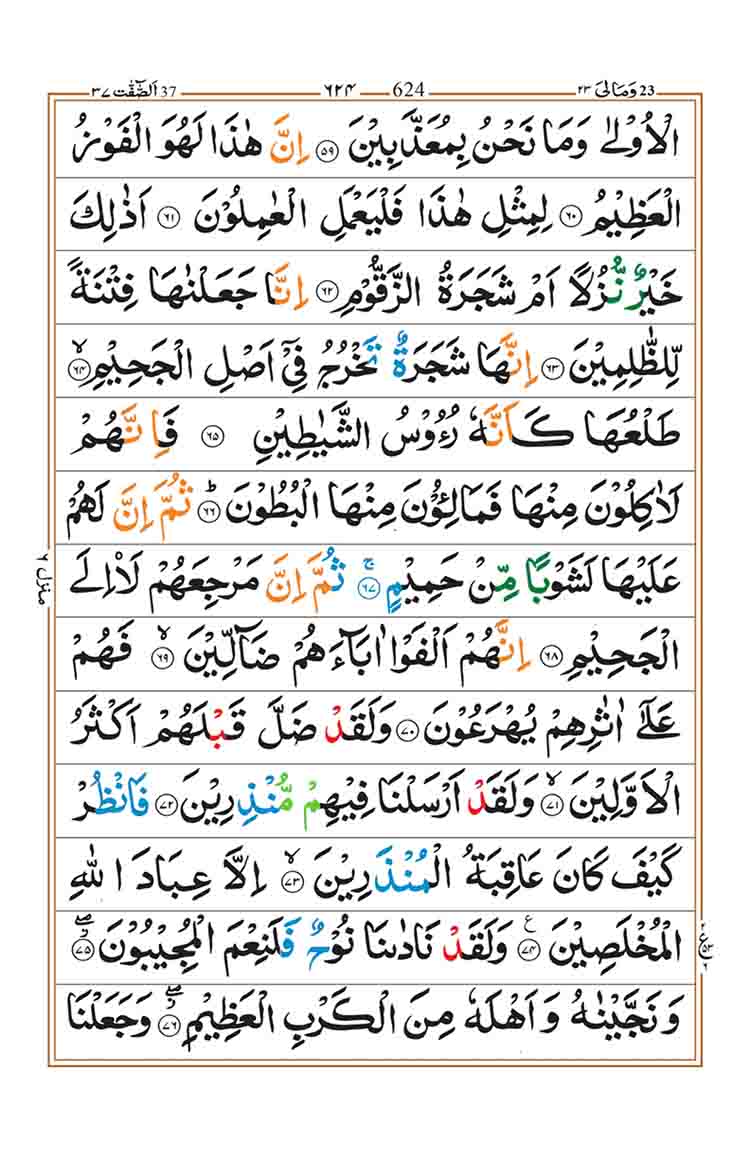 ٣٧ اَلصّٰٓفّٰت 37 ٦٢٤ 624 ٢٣ وَمَالِیَ 23
الۡاُوۡلٰى وَمَا نَحۡنُ بِمُعَذَّبِيۡنَ ﴿۵۹﴾ اِنَّ هٰذَا لَهُوَ الۡفَوۡزُ
الۡعَظِيۡمُ ﴿۶۰﴾ لِمِثۡلِ هٰذَا فَلۡيَعۡمَلِ الۡعٰمِلُوۡنَ ﴿۶۱﴾ اَذٰلِكَ
خَيۡرٌ نُّزُلًا اَمۡ شَجَرَةُ الزَّقُّوۡمِ ﴿۶۲﴾ اِنَّا جَعَلۡنٰهَا فِتۡنَةً
لِّلظّٰلِمِيۡنَ ﴿۶۳﴾ اِنَّهَا شَجَرَةٌ تَخۡرُجُ فِىۡۤ اَصۡلِ الۡجَحِيۡمِۙ ﴿۶۴﴾
طَلۡعُهَا كَاَنَّهٗ رُءُوۡسُ الشَّيٰطِيۡنِ ﴿۶۵﴾ فَاِنَّهُمۡ
لَاٰكِلُوۡنَ مِنۡهَا فَمَالِـُٔوۡنَ مِنۡهَا الۡبُطُوۡنَؕ ﴿۶۶﴾ ثُمَّ اِنَّ لَهُمۡ
عَلَيۡهَا لَشَوۡبًا مِّنۡ حَمِيۡمٍۚ ﴿۶۷﴾ ثُمَّ اِنَّ مَرۡجِعَهُمۡ لَا۟اِلَى
الۡجَحِيۡمِ ﴿۶۸﴾ اِنَّهُمۡ اَلۡفَوۡا اٰبَآءَهُمۡ ضَآلِّيۡنَۙ ﴿۶۹﴾ فَهُمۡ
عَلٰٓى اٰثٰرِهِمۡ يُهۡرَعُوۡنَ ﴿۷۰﴾ وَلَقَدۡ ضَلَّ قَبۡلَهُمۡ اَكۡثَرُ
الۡاَوَّلِيۡنَۙ ﴿۷۱﴾ وَلَقَدۡ اَرۡسَلۡنَا فِيۡهِمۡ مُّنۡذِرِيۡنَ ﴿۷۲﴾ فَانْظُرۡ
كَيۡفَ كَانَ عَاقِبَةُ الۡمُنۡذَرِيۡنَۙ ﴿۷۳﴾ اِلَّا عِبَادَ اللّٰهِ
الۡمُخۡلَصِيۡنَ ﴿۷۴﴾ ع وَلَقَدۡ نَادٰٮنَا نُوۡحٌ فَلَنِعۡمَ الۡمُجِيۡبُوۡنَ ۖ ﴿۷۵﴾
وَنَجَّيۡنٰهُ وَاَهۡلَهٗ مِنَ الۡكَرۡبِ الۡعَظِيۡمِ ۖ ﴿۷۶﴾ وَجَعَلۡنَا
منزل ٦